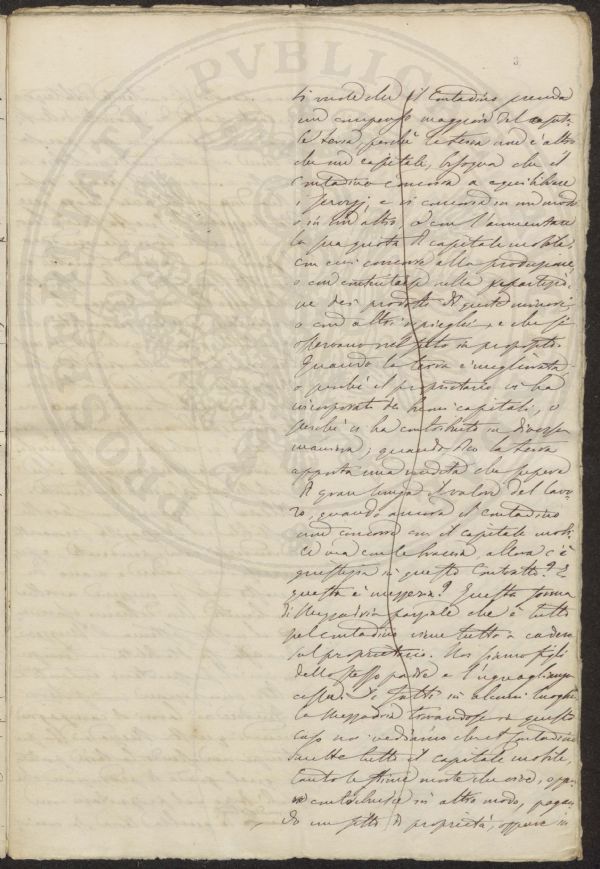 3
si vuole che il Contadino prenda
un compenso maggiore del capita-
le terra, perchè la terra non è altro
che un capitale, bisogna che il
Contadino concorra a equilibrare
i servizj, e si concorre in un modo
o in un altro o con l'aumentare
la sua quota di capitale mobile,
con cui concorre alla produzione
o con nella repartizio-
ne dei prodotti di quote minori
o con altri che si
osservano nel fatto in proposito.
Quando la terra è migliorata
o perchè il proprietario vi ha
incorporati dei buoni capitali, o
perchè ci ha contribuito in diversa
maniera, quando dico la terra
apporta una rendita che supera
di gran lunga il valore del lavo-
ro, quando ancora il contadino
non concorre con il capitale mobi-
le ma con le braccia, allora c'è
giustizia in questo Contratto? E
questa è mezzeria? Questa forma
di Mezzadria parziale che è tutta
pel contadino viene tutta a cadere
sul proprietario. Noi siamo figli
dello stesso padre e l'uguaglianza
Di fatti in alcuni luoghi
la Mezzadria trovandosi in questo
caso noi vediamo che il Contadino
mette tutto il capitale mobile,
tanto le stime morte che vive, oppu-
re contribuisce in altro modo, pagan-
do un fitto di proprietà, oppure in
PROSPERITATI PVBLICAE